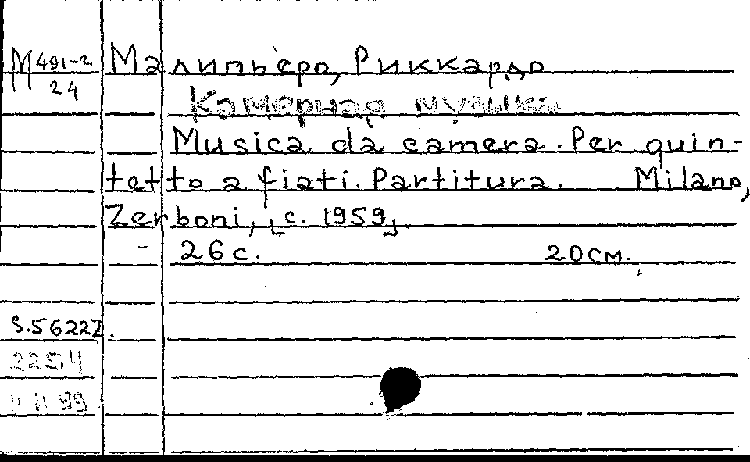 М 491-2
24
Малипьеро, Риккардо
Камерная музыка
Musica da camera. Per quin-
tetto a fiati. Partitura. Milano,
Zerboni, [c. 1959].
26 с. 20 см.
S.5622Z.
2254
11 99